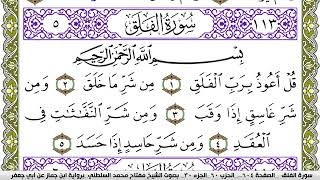 ٥ سُورَةُ الفَلَقِ ١١٣
بِسْمِ اللَّهِ الرَّحْمَٰنِ الرَّحِيمِ
قُلْ أَعُوذُ بِرَبِّ الْفَلَقِ ١ مِن شَرِّ مَا خَلَقَ ٢ وَمِن
شَرِّ غَاسِقٍ إِذَا وَقَبَ ٣ وَمِن شَرِّ النَّفَّاثَاتِ فِي
الْعُقَدِ ٤ وَمِن شَرِّ حَاسِدٍ إِذَا حَسَدَ ٥
سورة الفلق - الصفحة ٦٠٤ - الحزب ٦٠ - الجزء ٣٠ - بصوت الشيخ مفتاح محمد السلطني برواية ابن جماز عن أبي جعفر